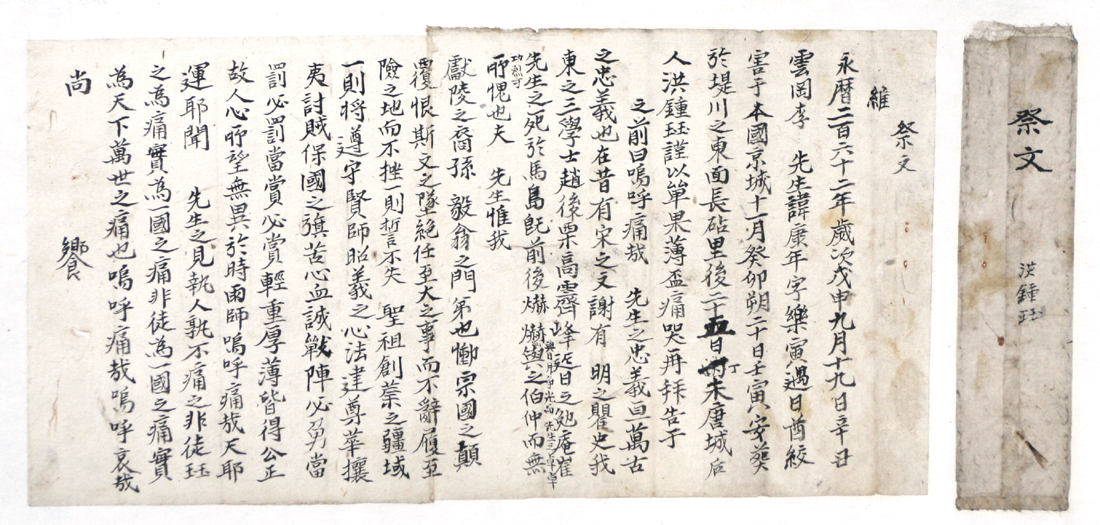 祭文
洪鍾珏
祭文
維
永曆二百六十二年歲次戊申九月十九日辛丑
雲岡李 先生諱康年字樂寅遇日酋絞
害于本國京城十一月癸卯朔二十日壬寅八安葬
於堤川之東面長砧里後二十五日丁未唐城后
人洪鍾珏謹以單果薄盃痛哭再拜告于
之前曰嗚呼痛哉 先生之忠義亘萬古
之忠義也在昔有宋之文謝有 明之瞿史我
東之三學士趙後栗高霽峰近日之勉庵崔
先生之死於馬島旣前後爀爀與之伯仲而無
功烈
所愧也夫 先生惟我
獻陵之裔孫 毅翁之門弟也慟宗國之顚
覆恨斯文之墜絶任至大之事而不辭履至
險之地而不挫一則誓不失 聖祖創業之疆域
一則將遵守賢師昭義之心法建尊華攘
夷討賊保國之旗苦心血誠戰陣必勇當
罰必罰當賞必賞輕重厚薄皆得公正
故人心所望無異於時雨師嗚呼痛哉天耶
運耶聞 先生之見執人孰不痛之非徒珏
之爲痛實爲一國之痛非徒爲一國之痛實
爲天下萬世之痛也嗚呼痛哉嗚呼哀哉
尚 饗